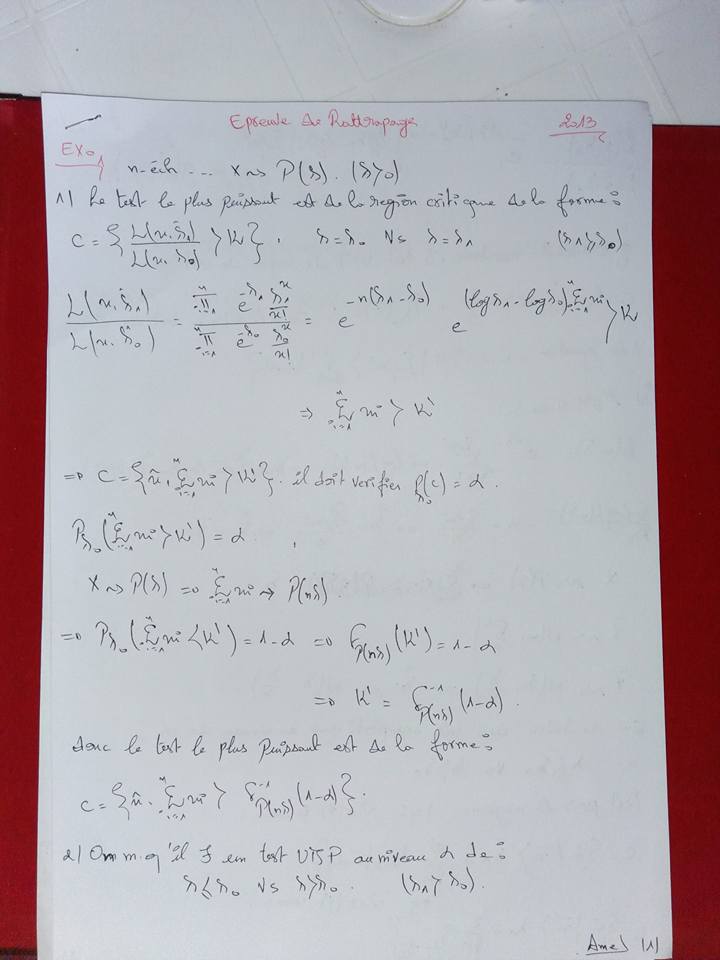 Epreuve de Rattrapage 2013
EXo1
n-éch ... X ~> P(λ). (λ>0)
1) Le test le plus puissant est de la région critique de la forme:
C = { L(x, λ1) / L(x, λ0) > K }, λ = λ0 Vs λ = λ1 (λ1 > λ0)
L(x, λ1) / L(x, λ0) = ∏_{i=1}^n e^{-λ1} λ1^x / x! / ∏_{i=1}^n e^{-λ0} λ0^x / x! = e^{-n(λ1-λ0)} e^{(log λ1 - log λ0) Σ_{i=1}^n xi} > K
=> Σ_{i=1}^n xi > K'
=> C = { x̃, Σ_{i=1}^n xi > K' }. il doit verifier P_{λ0}(C) = α.
P_{λ0}(Σ_{i=1}^n xi > K') = α,
X ~> P(λ) => Σ_{i=1}^n xi ~> P(nλ).
=> P_{λ0}(Σ_{i=1}^n xi < K') = 1-α => F_{P(nλ)}(K') = 1-α
=> K' = F^{-1}_{P(nλ)}(1-α).
donc le test le plus puissant est de la forme:
C = { x̃, Σ_{i=1}^n xi > F^{-1}_{P(nλ)}(1-α) }.
2) On m. q'il ∃ un test UPP au niveau α de:
λ ≤ λ0 Vs λ > λ0. (λ1 > λ0).
Amel (1)